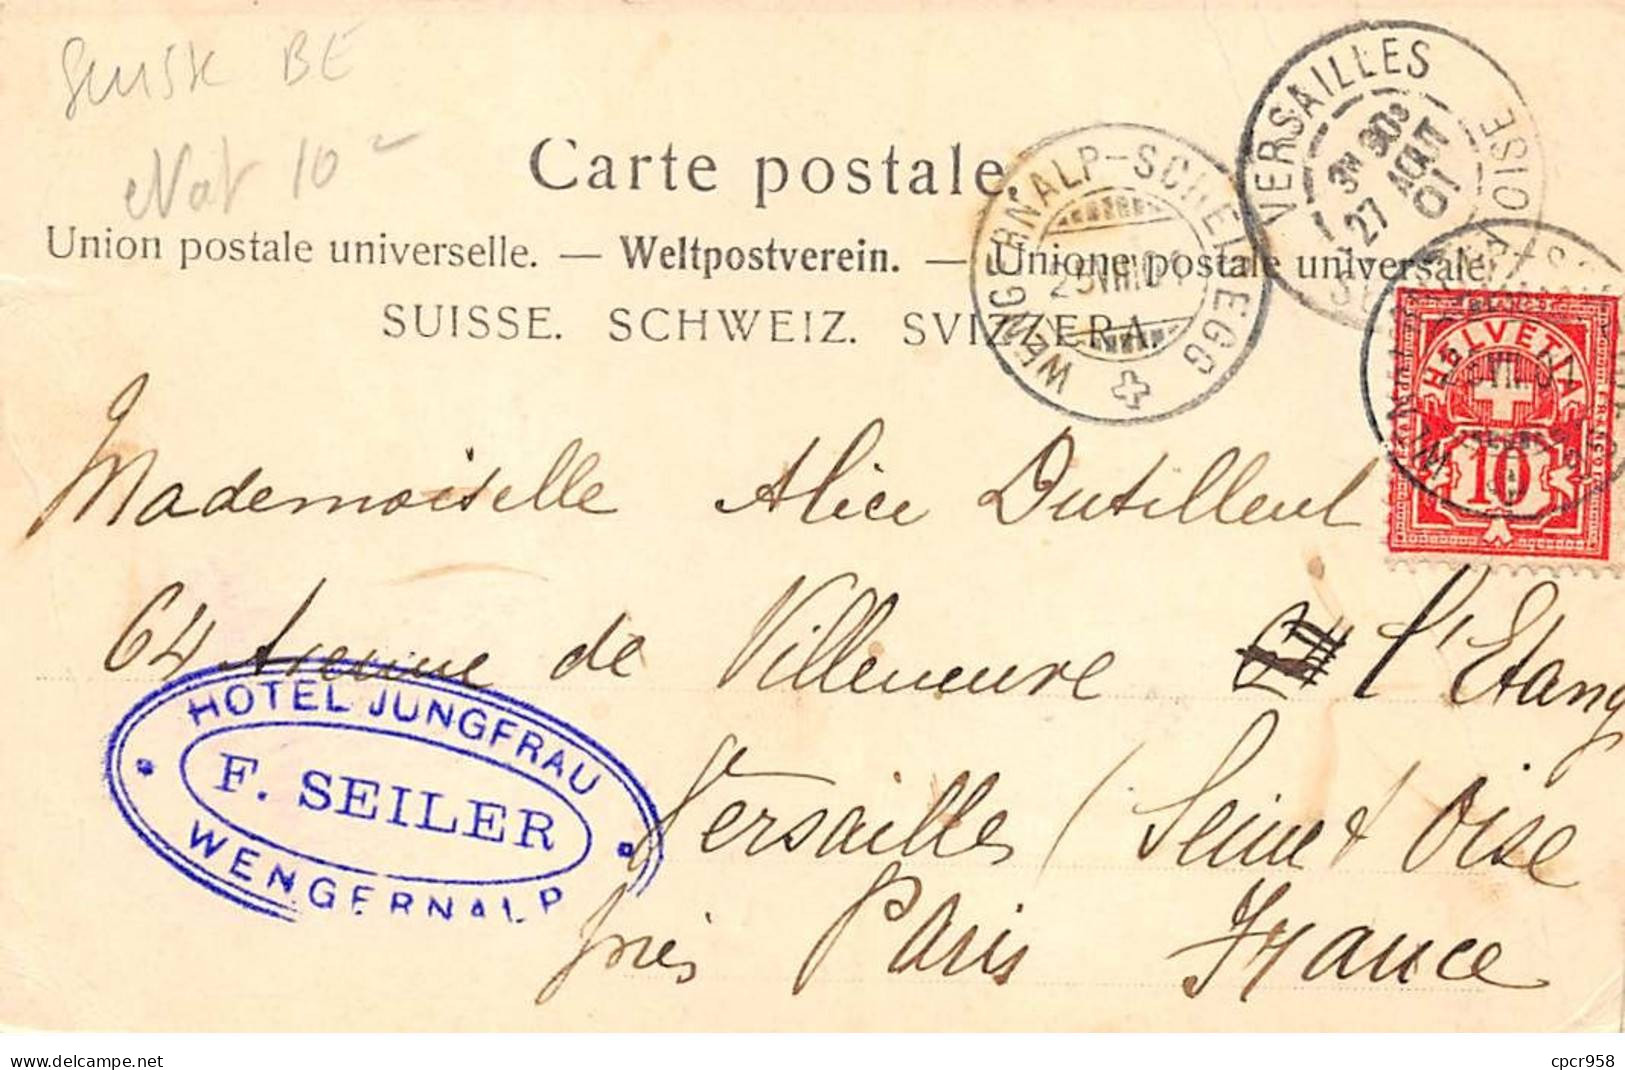 Suisse BE
Nat 10
Carte postale.
Union postale universelle. — Weltpostverein. — Unione postale universale.
SUISSE. SCHWEIZ. SVIZZERA.
WENGERNALP-SCHEIDEGG
25.VIII.01
VERSAILLES
3E 30S
27 AOUT
01
HELVETIA
10
Mademoiselle Alice Dutilleul
64 Avenue de Villeneuve l'Etang
Versailles (Seine & Oise
près Paris France
HOTEL JUNGFRAU
F. SEILER
WENGERNALP
www.delcampe.net
cpcr958